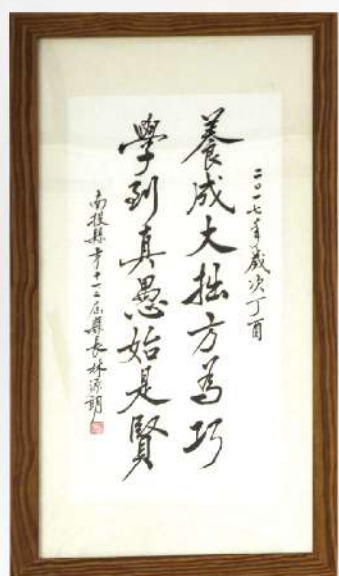 二〇一七年歲次丁酉
養成大拙方為巧
學到真愚始是賢
南投縣第十一二屆縣長林源朗